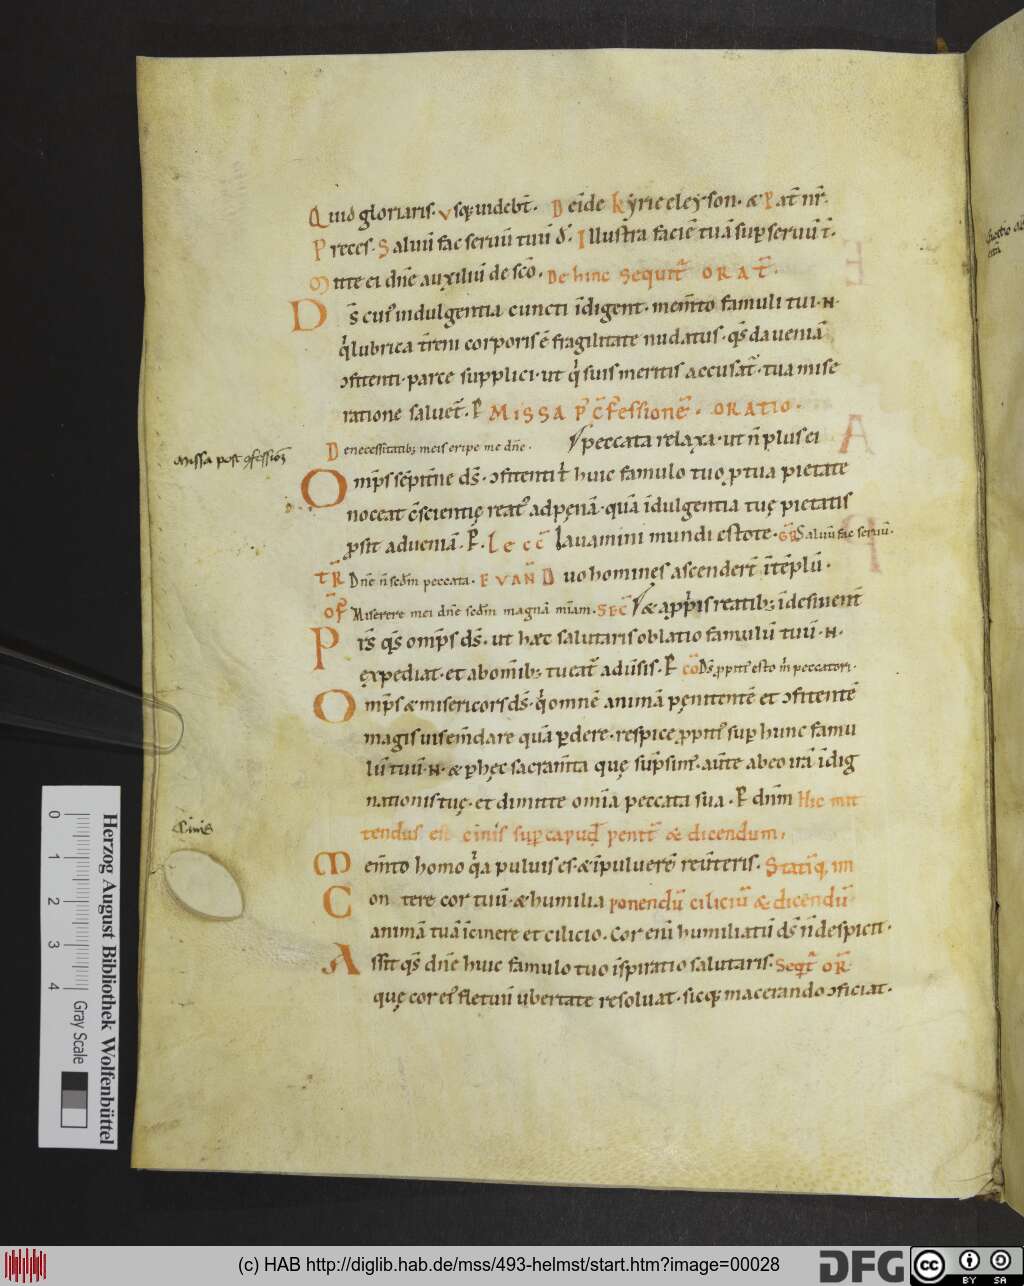 Quid gloriaris. Vsq; uidebt̄. Deīde kẏrieeleẏson. & Pat̄ nr̄.
Preces. Saluū fac seruū tuū d̄s. Illustra faciē tuā sup seruū t̄.
Mitte ei dn̄e auxiliū de sc̄o. De hinc sequit̄ ORAT̄.
Ds̄ cui᾽ indulgentia cuncti īdigent. mem̄to famuli tui .N.
q̇ lubrica t̄reni corporis ē fragilitate nudatus. qs̄ da ueniā
ɔfitenti. parce supplici. ut q̇ suis meritis accusat̄. tua mise
ratione saluet̄. P̄ MISSA P᾽ C̄FESSIONĒ. ORATIO.
De necessitatib; meis eripe me dn̄e. peccata relaxa. ut n̄ plus ei
missa post ɔfessionē
Omp̄s sēpitn̄e ds̄. ɔfitenti t̄ huic famulo tuo ꝑ tua pietate
noceat c̄scientię reat᾽ ad pęnā. quā īdulgentia tuę pietatis
ꝓsit ad ueniā. P̄. Lecc̄ Lauamini mundi estote. GR̄ Saluū fac seruū.
TR̄ Dn̄e n̄ sedm̄ peccata. EVAN̄ Duo homines ascendert̄ ītēplū.
OF̄ Miserere mei dn̄e sedm̄ magnā miam̄. SEC̄ & a ꝓp̄iis reatib; īdesinent̄
Prs̄ qs̄ omp̄s ds̄. ut hæc salutaris oblatio famulū tuū .N.
expediat. et ab om̄ib; tueat̄ aduīsis. P̄ CŌ Ds̄ ꝓpiti᾽ esto m̄ peccatori.
Omp̄s & misericors ds̄. q̇ omnē animā pęnitentē et ɔfitentē
magis uis em̄dare quā ꝑdere. respice ꝓpiti᾽ sup hunc famu
lū tuū .N. & ꝑ hęc sacram̄ta quę sūpsim᾽. aūte ab eo irā īdig
nationis tuę. et dimitte om̄ia peccata sua. P̄ dn̄m Hic mit
tendus est cinis sup capud penit̄ & dicendum.
Cinis
Mem̄to homo q̇a puluis es. & ī puluerē reūteris. Statīq, im
Contere cor tuū. & humilia ponendū ciliciū & dicendū
animā tuā ī cinere et cilicio. Cor enī humiliatū ds̄ n̄ despicit.
Assit qs̄ dn̄e huic famulo tuo īspiratio salutaris. Seqt̄ OR̄.
quę cor ei᾽ fletuū ubertate resoluat. sicq; macerando ɔficiat.
0 1 2 3 4
Gray Scale
Herzog August Bibliothek Wolfenbüttel
(c) HAB http://diglib.hab.de/mss/493-helmst/start.htm?image=00028
DFG
cc
BY SA